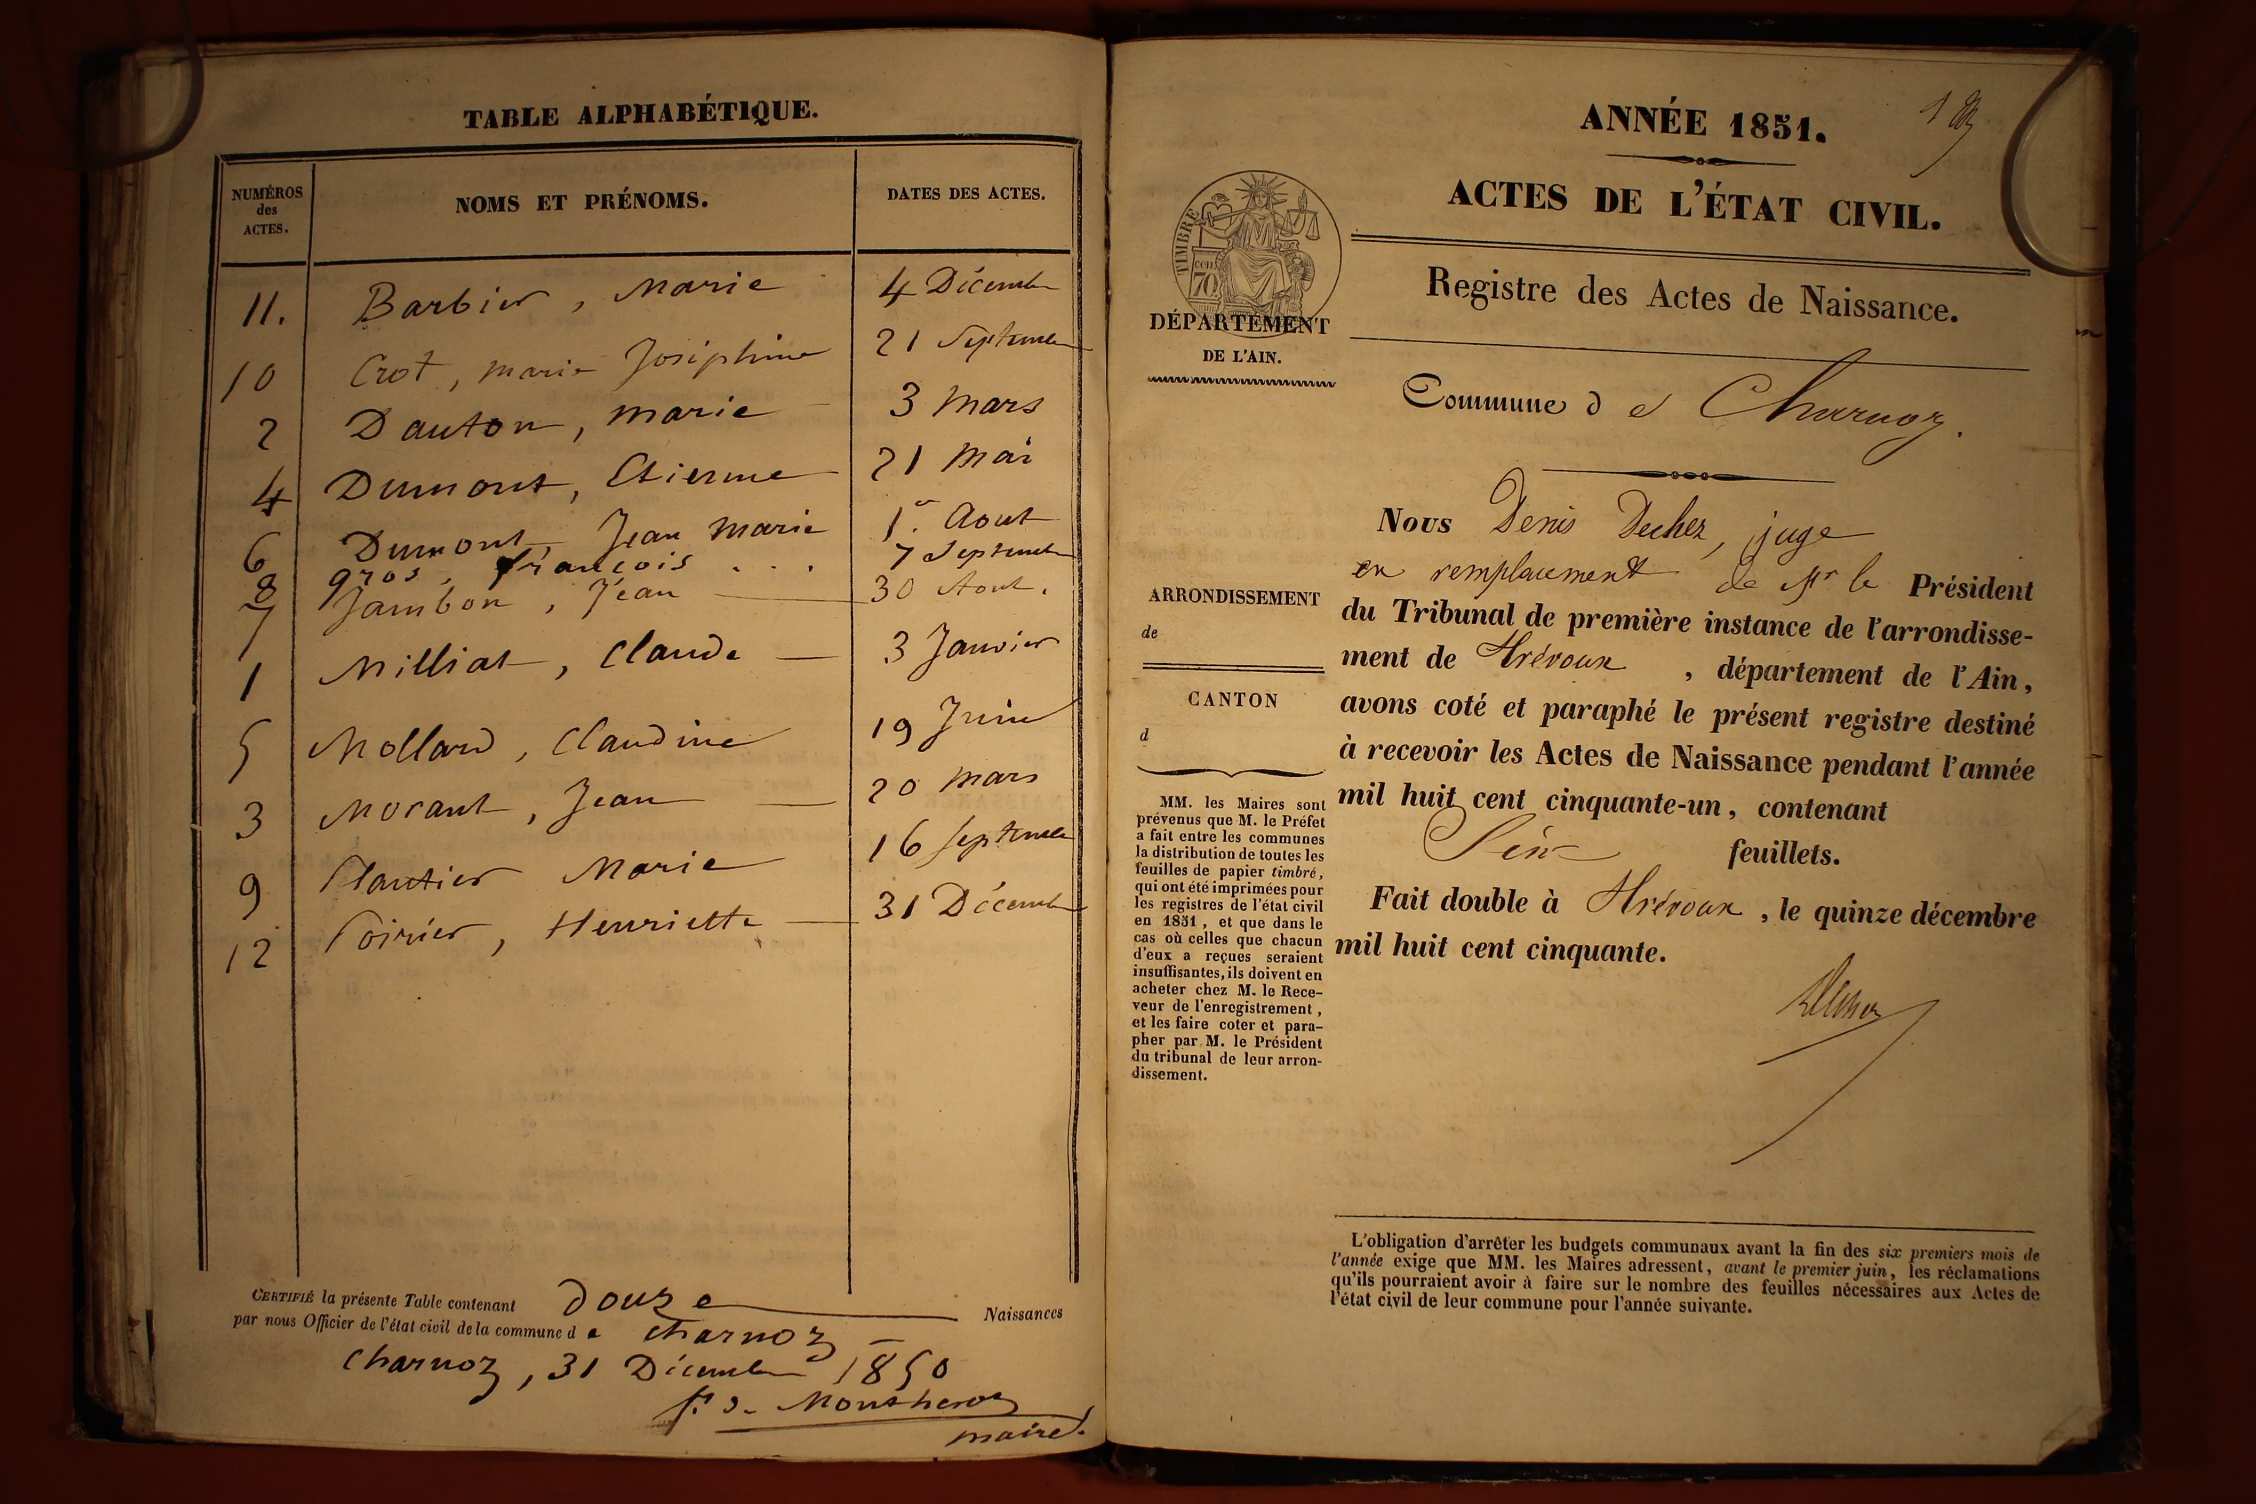 TABLE ALPHABÉTIQUE.
NUMÉROS des ACTES. NOMS ET PRÉNOMS. DATES DES ACTES.
11. Barbier, Marie 4 Décembre
10 Crot, marie Joséphine 21 Septembre
2 Dauton, marie 3 mars
4 Dumont, Etienne 21 mai
6 Dumont, Jean Marie 1er Aout
8 gros, françois . . . 7 Septembre
7 Jambon, Jean 30 Aout.
1 Milliat, Claude 3 Janvier
5 Mollard, Claudine 19 Juin
3 Morant, Jean 20 mars
9 Plantier Marie 16 Septembre
12 Poirier, Henriette 31 Décembre
CERTIFIÉ la présente Table contenant douze Naissances
par nous Officier de l'état civil de la commune de charnoz
charnoz, 31 Décembre 1850
maire.
ANNÉE 1851.
ACTES DE L'ÉTAT CIVIL.
TIMBRE
70
DÉPARTEMENT
DE L'AIN.
Registre des Actes de Naissance.
Commune de Charnoz.
ARRONDISSEMENT
de
CANTON
d
MM. les Maires sont
prévenus que M. le Préfet
a fait entre les communes
la distribution de toutes les
feuilles de papier timbré,
qui ont été imprimées pour
les registres de l'état civil
en 1851, et que dans le
cas où celles que chacun
d'eux a reçues seraient
insuffisantes, ils doivent en
acheter chez M. le Rece-
veur de l'enregistrement,
et les faire coter et para-
pher par M. le Président
du tribunal de leur arron-
dissement.
Nous Denis Dechez, juge
en remplacement de Mr le Président
du Tribunal de première instance de l'arrondisse-
ment de Trévoux, département de l'Ain,
avons coté et paraphé le présent registre destiné
à recevoir les Actes de Naissance pendant l'année
mil huit cent cinquante-un, contenant
Six feuillets.
Fait double à Trévoux, le quinze décembre
mil huit cent cinquante.
L'obligation d'arrêter les budgets communaux avant la fin des six premiers mois de
l'année exige que MM. les Maires adressent, avant le premier juin, les réclamations
qu'ils pourraient avoir à faire sur le nombre des feuilles nécessaires aux Actes de
l'état civil de leur commune pour l'année suivante.